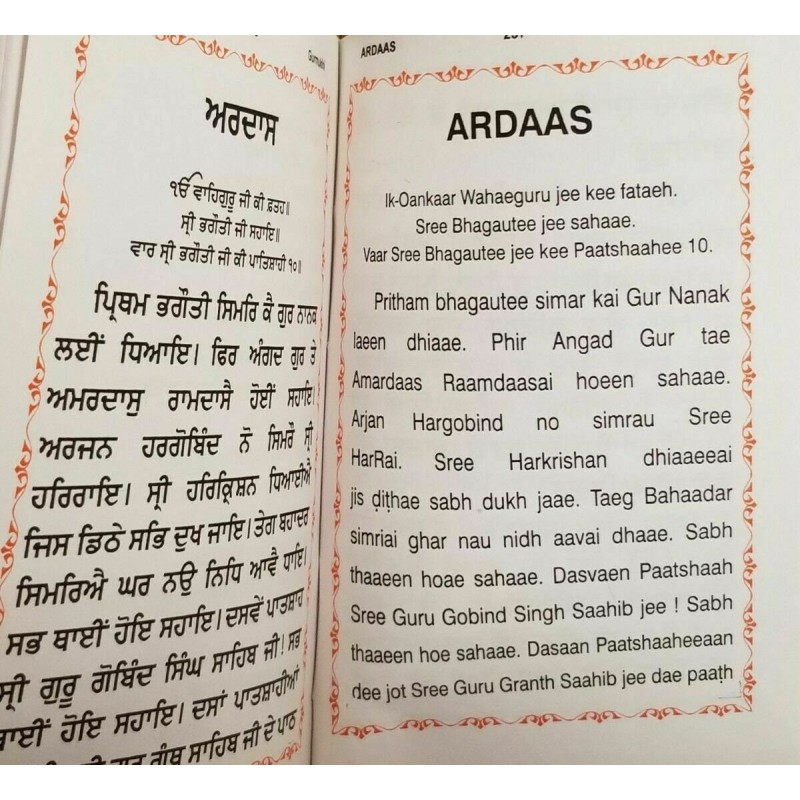 Gurmukhi
ਅਰਦਾਸ
ੴ ਵਾਹਿਗੁਰੂ ਜੀ ਕੀ ਫ਼ਤਹ॥
ਸ੍ਰੀ ਭਗੌਤੀ ਜੀ ਸਹਾਇ॥
ਵਾਰ ਸ੍ਰੀ ਭਗੌਤੀ ਜੀ ਕੀ ਪਾਤਿਸ਼ਾਹੀ ੧੦॥
ਪ੍ਰਿਥਮ ਭਗੌਤੀ ਸਿਮਰਿ ਕੈ ਗੁਰ ਨਾਨਕ
ਲਈਂ ਧਿਆਇ। ਫਿਰ ਅੰਗਦ ਗੁਰ ਤੇ
ਅਮਰਦਾਸੁ ਰਾਮਦਾਸੈ ਹੋਈਂ ਸਹਾਇ।
ਅਰਜਨ ਹਰਗੋਬਿੰਦ ਨੋ ਸਿਮਰੌ ਸ੍ਰੀ
ਹਰਿਰਾਇ। ਸ੍ਰੀ ਹਰਿਕ੍ਰਿਸ਼ਨ ਧਿਆਈਐ
ਜਿਸ ਡਿਠੇ ਸਭਿ ਦੁਖ ਜਾਇ। ਤੇਗ ਬਹਾਦਰ
ਸਿਮਰਿਐ ਘਰ ਨਉ ਨਿਧਿ ਆਵੈ ਧਾਇ।
ਸਭ ਥਾਈਂ ਹੋਇ ਸਹਾਇ। ਦਸਵੇਂ ਪਾਤਸ਼ਾਹ
ਸ੍ਰੀ ਗੁਰੂ ਗੋਬਿੰਦ ਸਿੰਘ ਸਾਹਿਬ ਜੀ! ਸਭ
ਥਾਈਂ ਹੋਇ ਸਹਾਇ। ਦਸਾਂ ਪਾਤਸ਼ਾਹੀਆਂ
ਗ੍ਰੰਥ ਸਾਹਿਬ ਜੀ ਦੇ ਪਾਠ
ARDAAS
ARDAAS
Ik-Oankaar Wahaeguru jee kee fataeh.
Sree Bhagautee jee sahaae.
Vaar Sree Bhagautee jee kee Paatshaahee 10.
Pritham bhagautee simar kai Gur Nanak
laeen dhiaae. Phir Angad Gur tae
Amardaas Raamdaasai hoeen sahaae.
Arjan Hargobind no simrau Sree
HarRai. Sree Harkrishan dhiaaeeai
jis ḍiṭhae sabh dukh jaae. Taeg Bahaadar
simriai ghar nau nidh aavai dhaae. Sabh
thaaeen hoae sahaae. Dasvaen Paatshaah
Sree Guru Gobind Singh Saahib jee ! Sabh
thaaeen hoe sahaae. Dasaan Paatshaaheeaan
dee jot Sree Guru Granth Saahib jee dae paaṭh